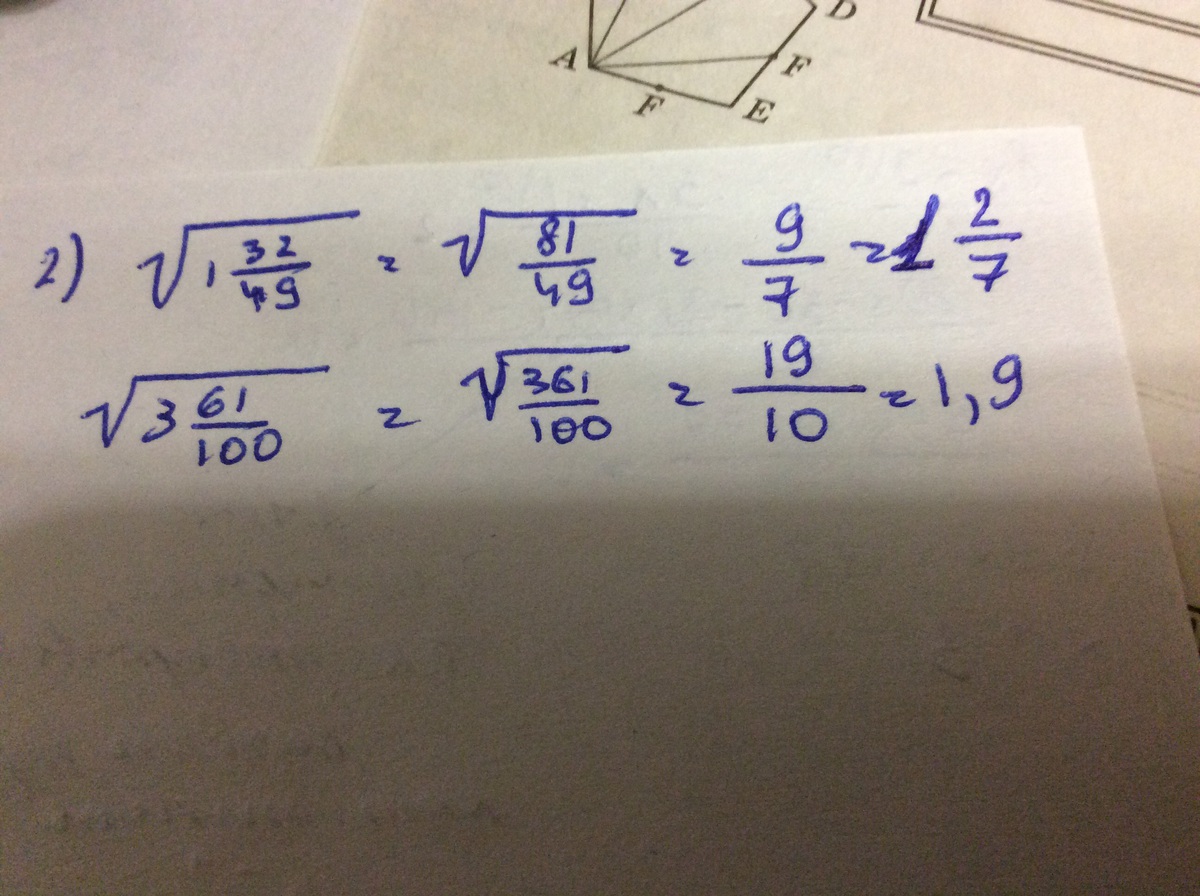 D
A
F
F
E
2) √(1 32/49) = √(81/49) = 9/7 = 1 2/7
√(3 61/100) = √(361/100) = 19/10 = 1,9